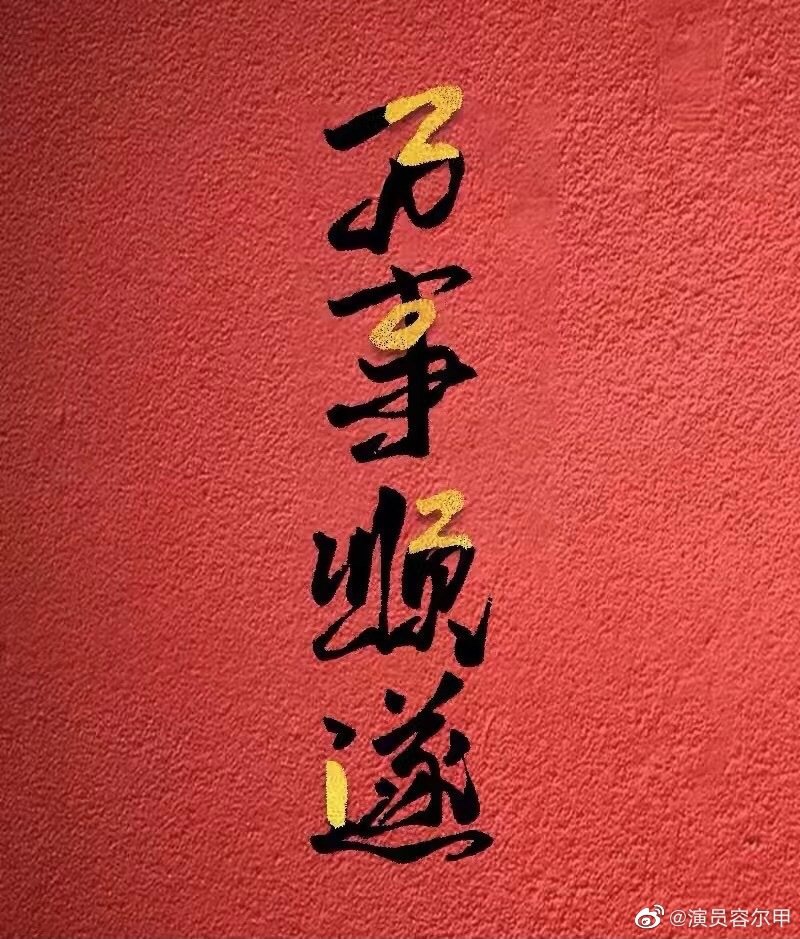 万事顺遂
@演员容尔甲